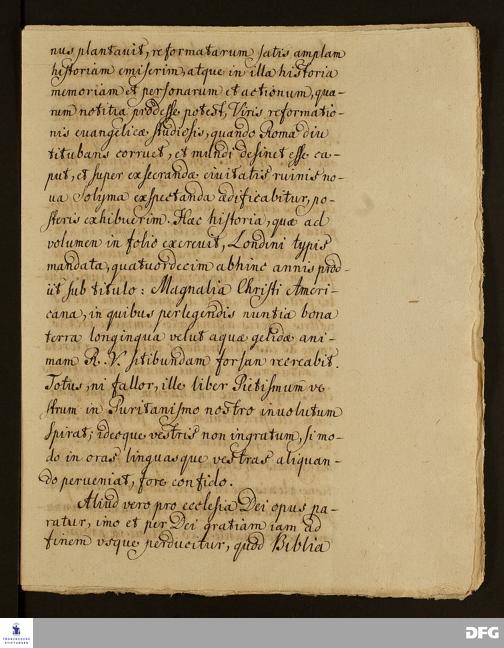 nus plantauit, reformatarum satis amplam
historiam emiserim, atque in illa historia
memoriam et personarum et actionum, qua-
rum notitia prodesse potest, Viris reformatio-
nis euangelicæ studiosis, quando Roma diu
titubans corruet, et mundi desinet esse ca-
put, et super exsecrandæ ciuitatis ruinis no-
ua Solyma exspectanda ædificabitur, po-
steris exhibuerim. Hæc historia, quæ ad
volumen in folio excreuit, Londini typis
mandata, quatuordecim abhinc annis prod-
iit sub titulo: Magnalia Christi Ameri-
cana, in quibus perlegendis nuntia bona
terra longinqua velut aquæ gelidæ ani-
mam R. V. sitibundam forsan recreabit.
Totus, ni fallor, ille liber Pietismum ve-
strum in Puritanismo nostro inuolutum
spirat; ideoque vestris non ingratum, si mo-
do in oras linguasque vestras aliquan-
do perueniat, fore confido.
Aliud vero pro ecclesia Dei opus pa-
ratur, imo et per Dei gratiam iam ad
finem vsque perducitur, quod Biblia
FRANCKESCHE
STIFTUNGEN
DFG